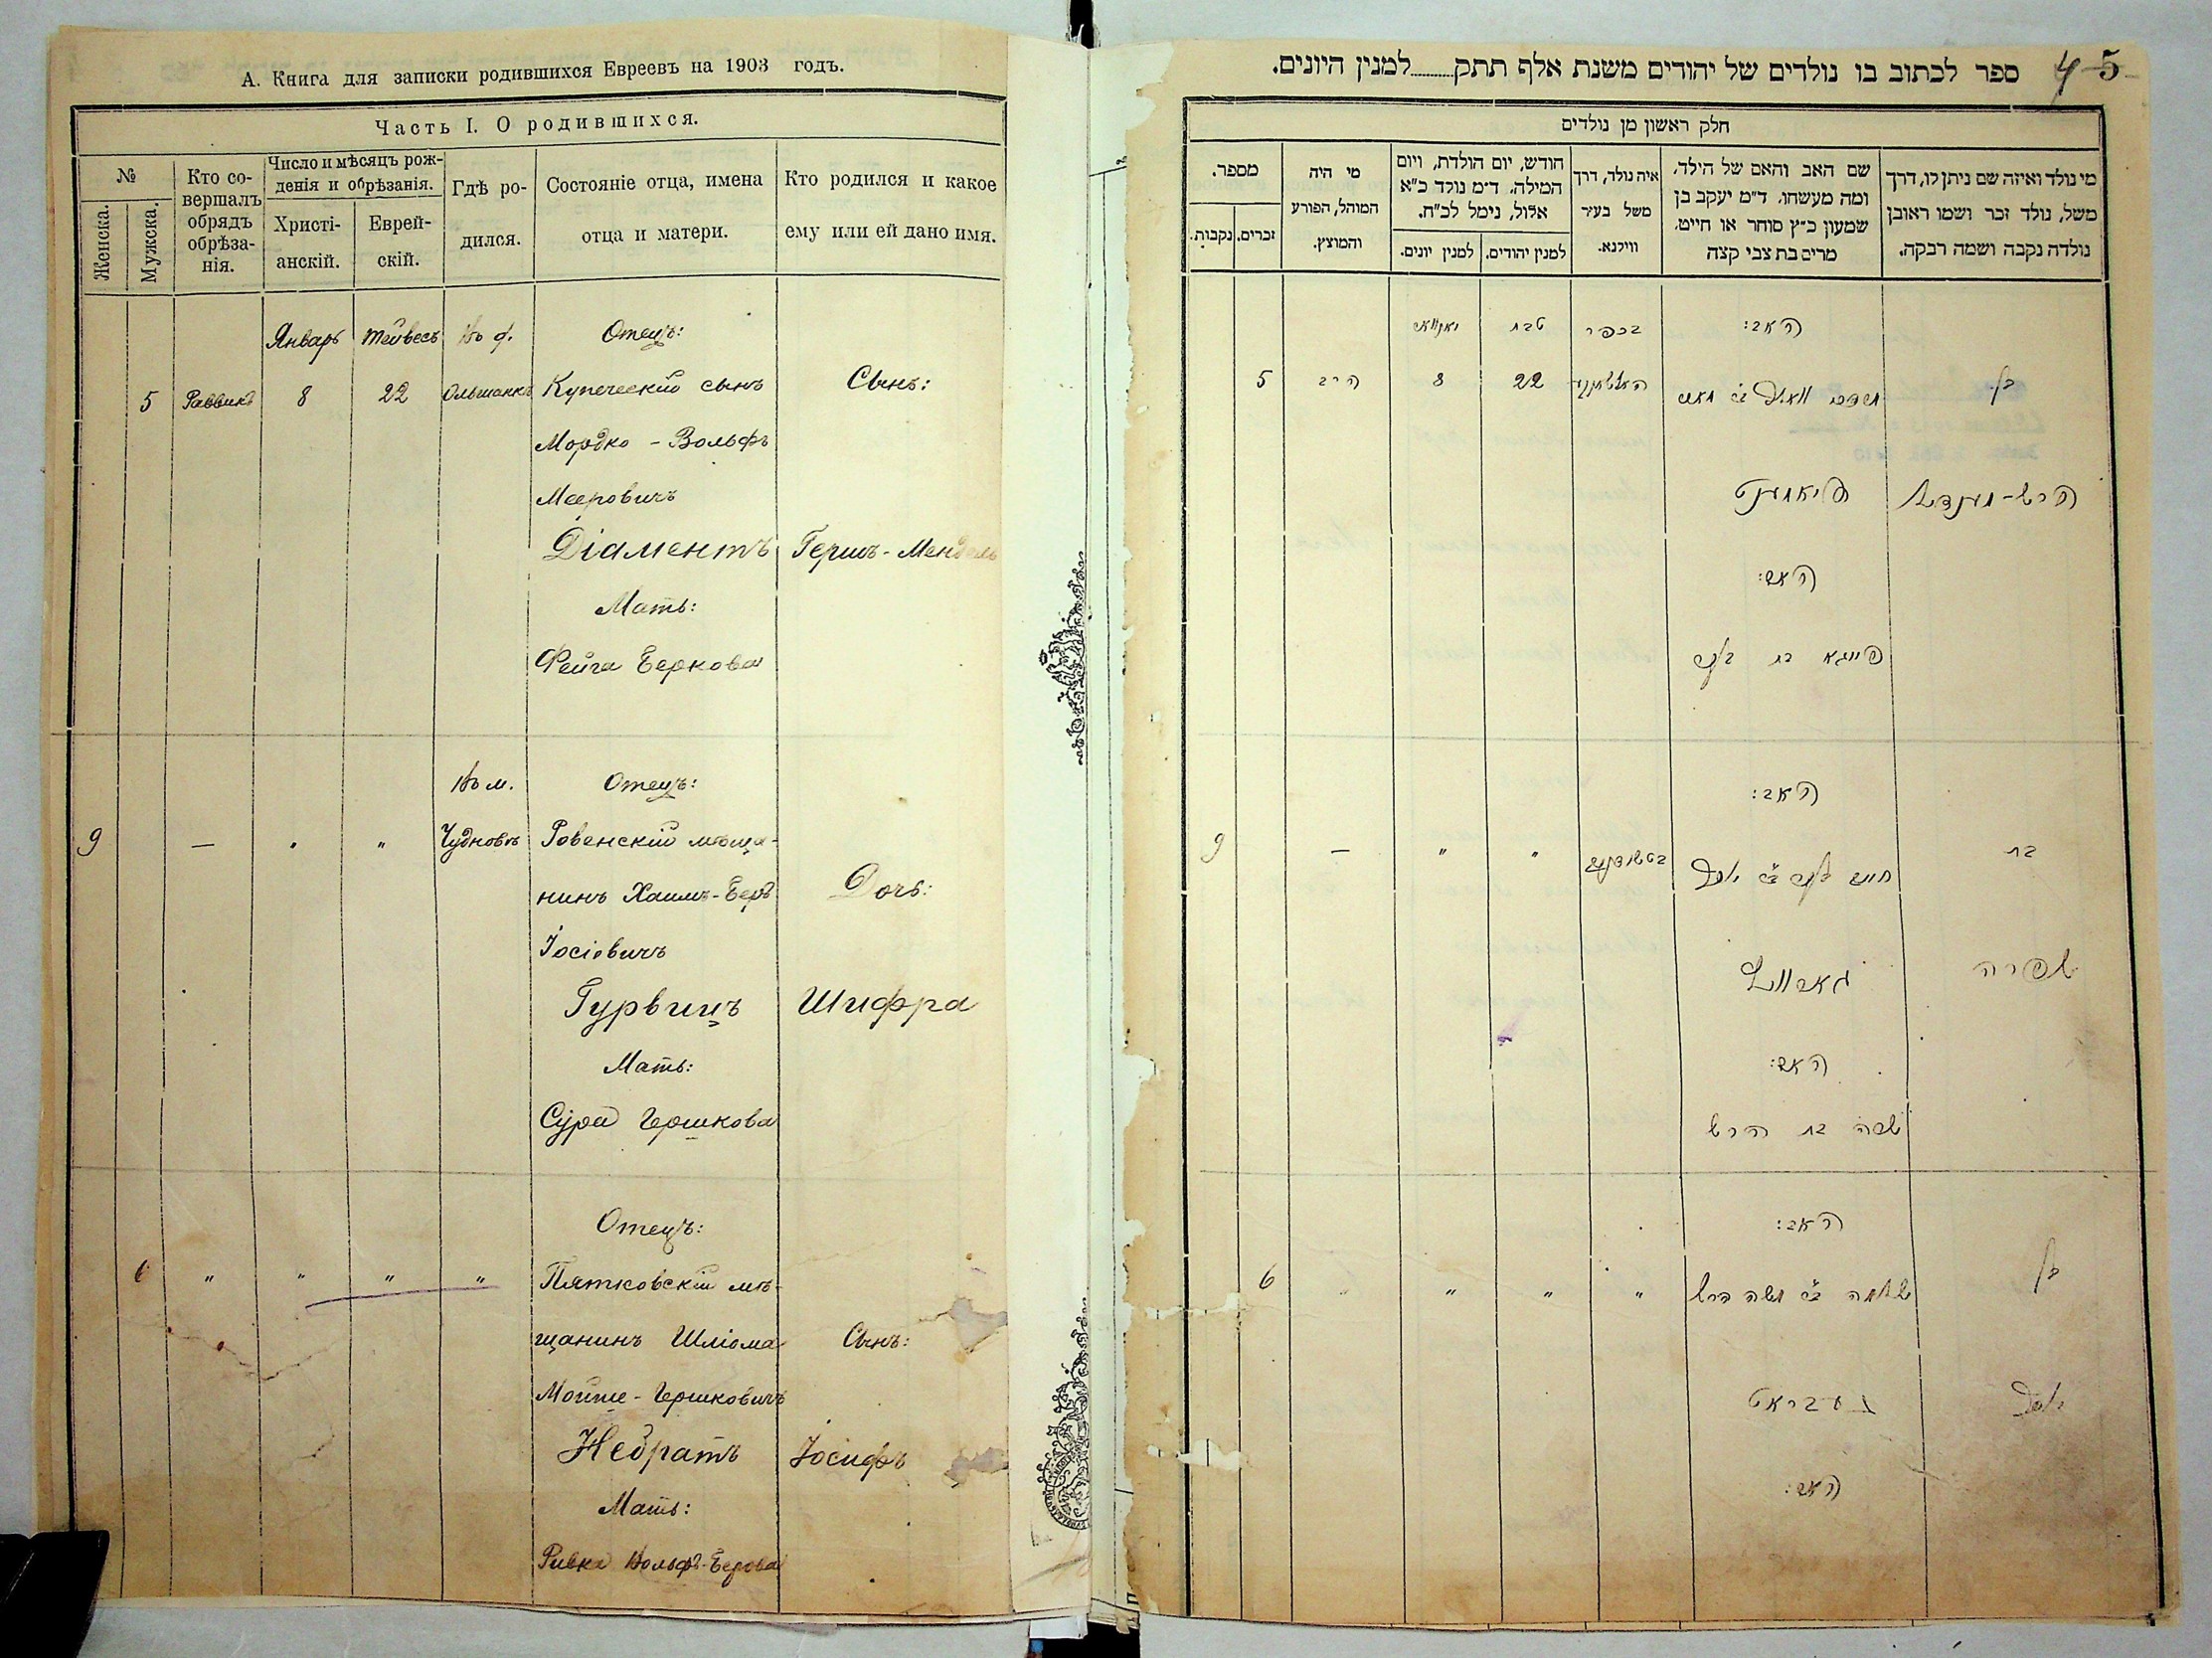 А. Книга для записки родившихся Евреевъ на 1903 годъ.
Часть I. О родившихся.
№
Женска.
Мужска.
Кто со-
вершалъ
обрядъ
обрѣза-
нія.
Число и мѣсяцъ рож-
денія и обрѣзанія.
Христі-
анскій.
Еврей-
скій.
Гдѣ ро-
дился.
Состояніе отца, имена
отца и матери.
Кто родился и какое
ему или ей дано имя.
Январь Тейвесъ Въ д. Отецъ:
5 Раввинъ 8 22 Ольшанкѣ Купеческій сынъ Сынъ:
Мордко - Вольфъ
Мееровичъ
Діаментъ Гершъ-Мендель
Мать:
Фейга Беркова
Въ м. Отецъ:
9 — " " Чудновѣ Ровенскій мѣща-
нинъ Хаимъ-Беръ Дочь:
Іосіовичъ
Гурвицъ Шифра
Мать:
Сура Гершкова
Отецъ:
6 " " " " Пятковскій мѣ-
щанинъ Шліома Сынъ:
Мойше-Гершковичъ
Недратъ Іосифъ
Мать:
Ривка Вольфъ-Берова
ספר לכתוב בו נולדים של יהודים משנת אלף תתק........למנין היונים.
4 5
חלק ראשון מן נולדים
מי נולד ואיזה שם ניתן לו, דרך
משל, נולד זכר ושמו ראובן
נולדה נקבה ושמה רבקה.
שם האב והאם של הילד,
ומה מעשהו. ד"מ יעקב בן
שמעון כ"ץ סוחר או חייט,
מרים בת צבי קצה
איה נולד, דרך
משל בעיר
ווילנא.
חודש, יום הולדת, ויום
המילה, ד"מ נולד כ"א
אלול, נימל לכ"ח.
למנין יהודים.
למנין יונים.
מי היה
המוהל, הפורע
והמוצץ.
מספר.
זכרים.
נקבות.
האב: בכפר טבת יאנואר
בן 22 8 הרב 5
הירש-מענדיל דיאמענט
האם:
פייגא בת בער
האב:
בת חיים בער ב"ר יוסף " " — 9
שפרה
האם:
שרה בת הירש
האב:
בן שלמה ב"ר משה הירש " " " " 6
יוסף
האם: